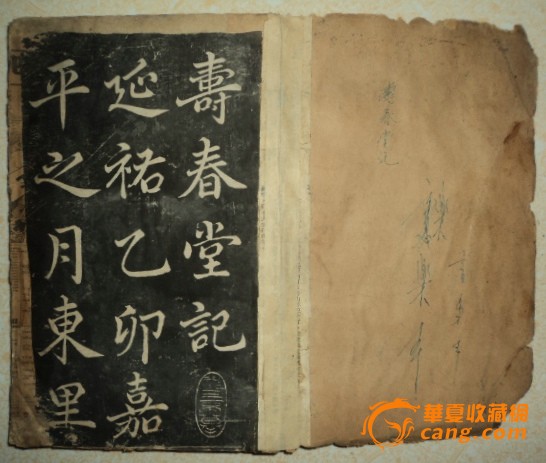 壽春堂記
延祐乙卯嘉
平之月東里
壽春堂記
華夏收藏網
cang.com